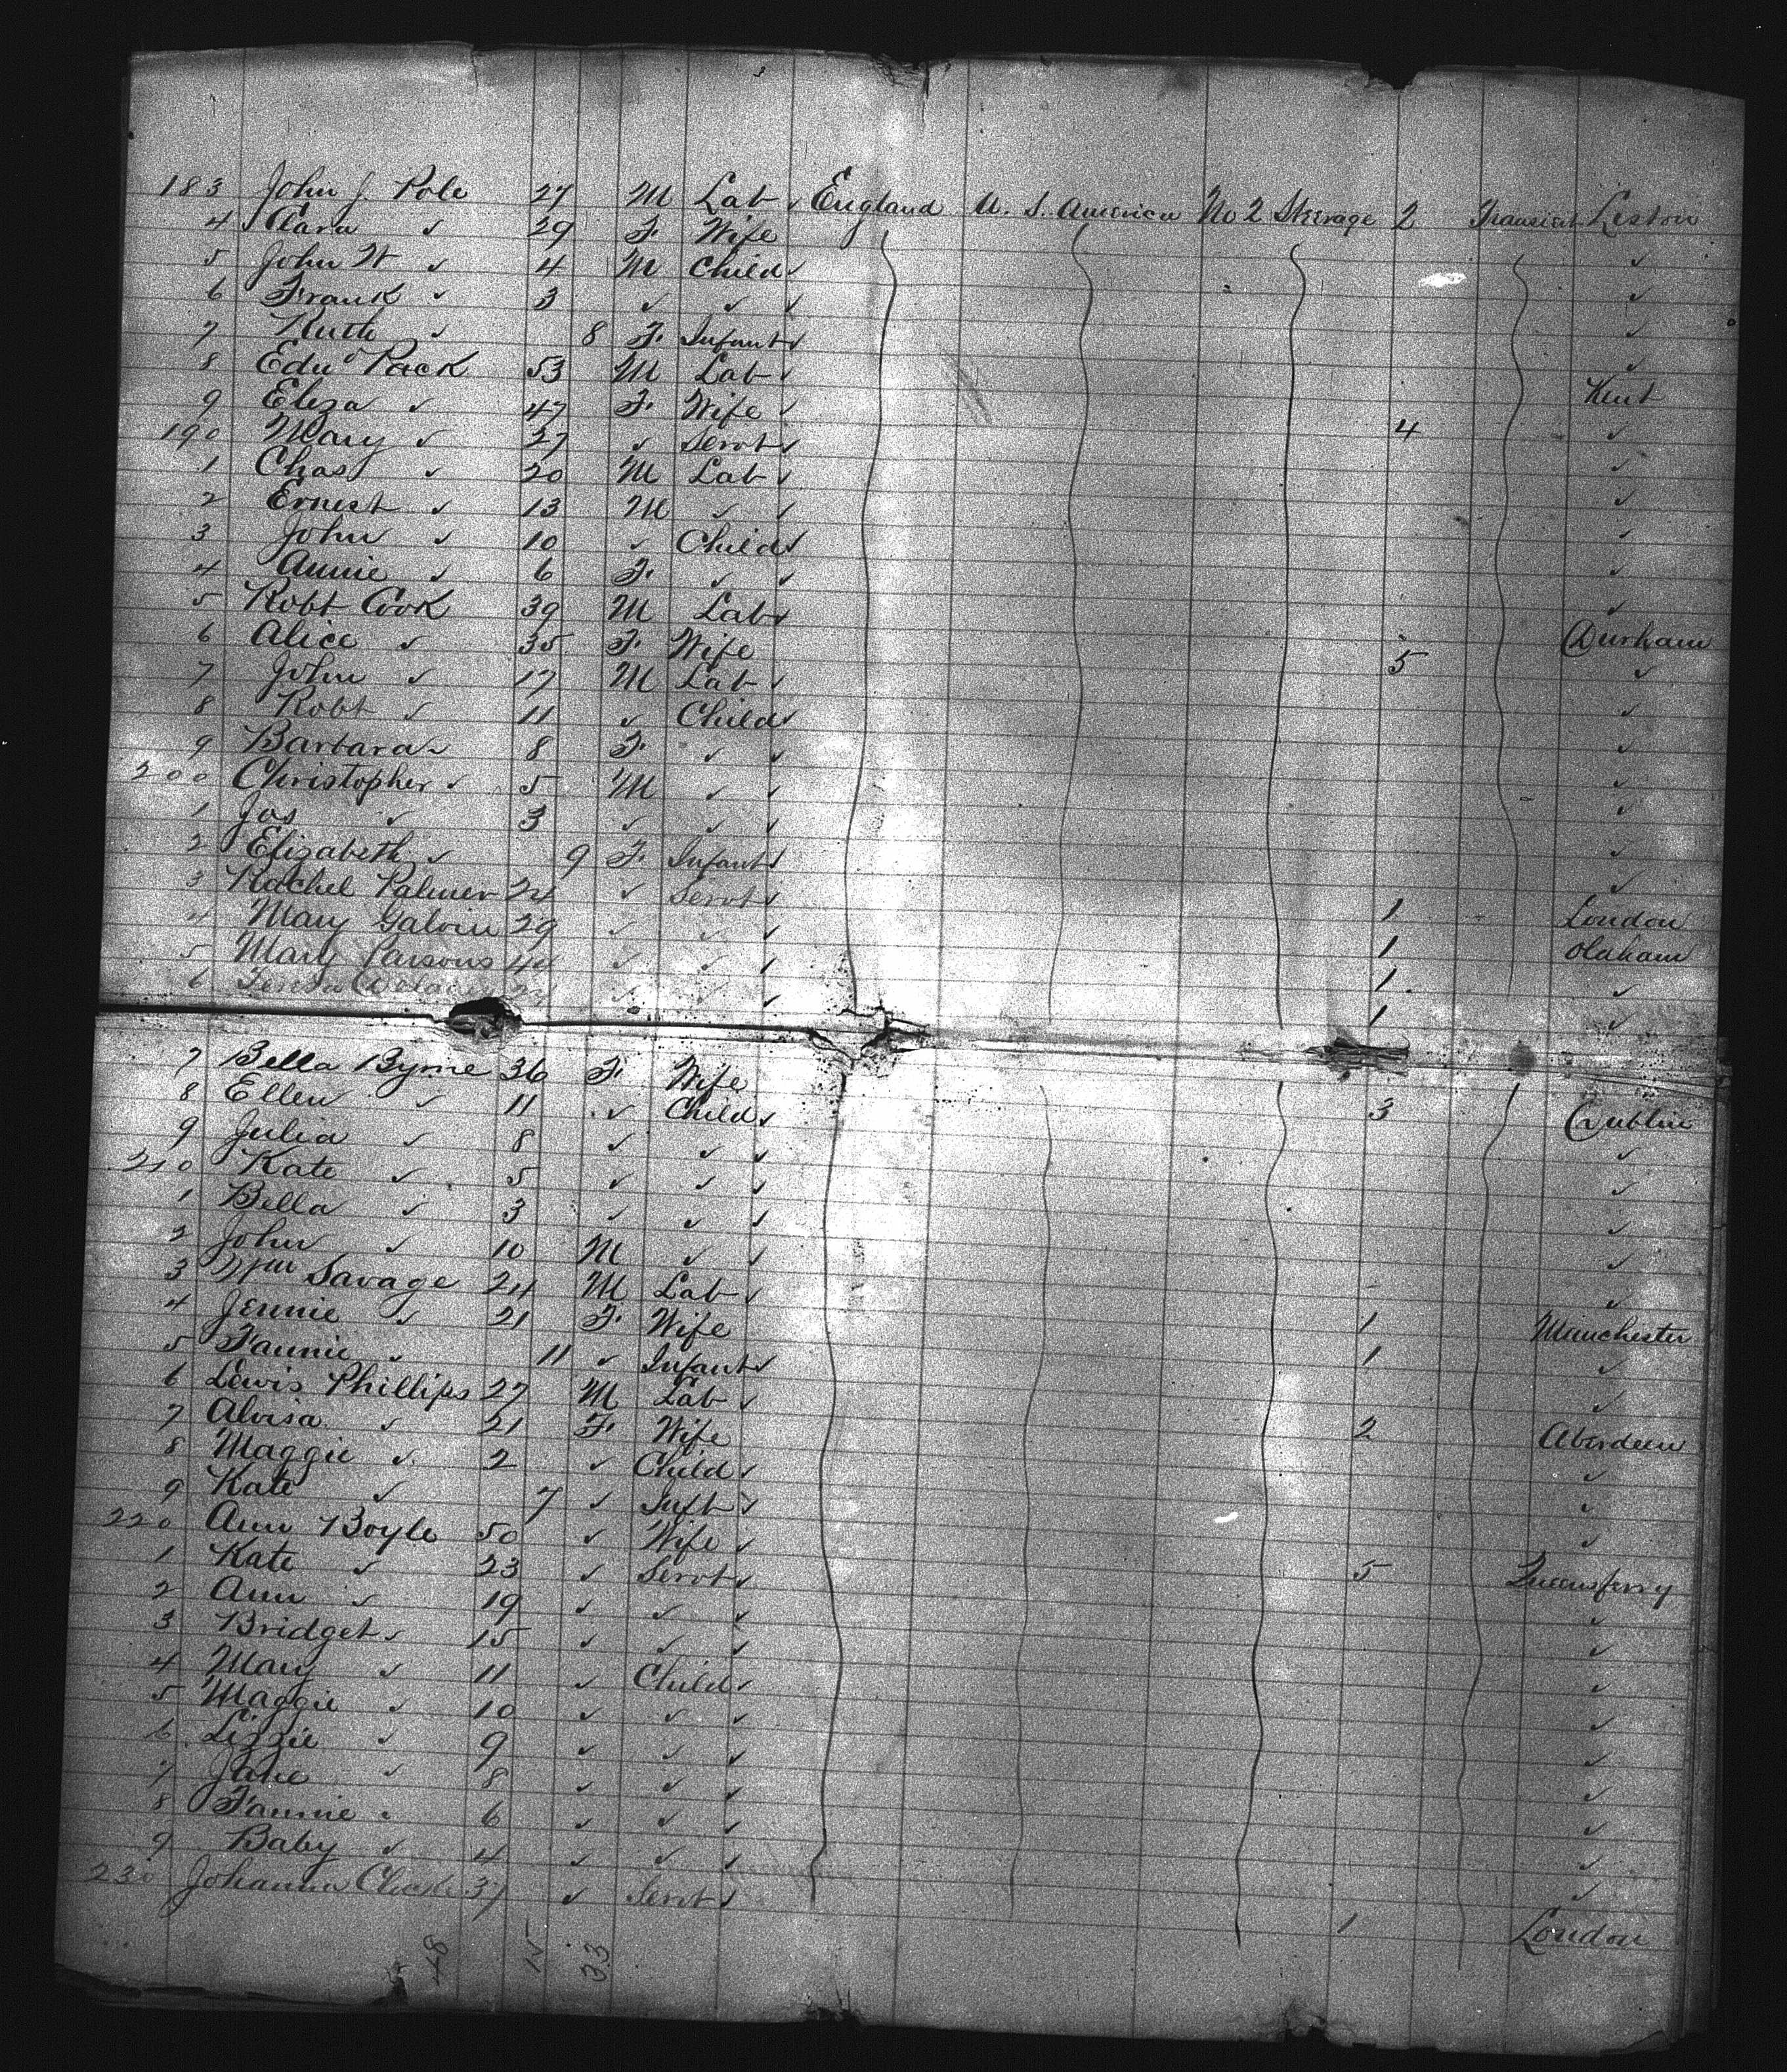 183 John J. Pole 27 M Lab ✓ England U. S. America No 2 Steerage 2 Transient
4 Clara ✓ 29 F. Wife ✓
5 John W ✓ 4 M Child ✓ ✓
6 Frank ✓ 3 ✓ ✓ ✓ ✓
7 Ruth ✓ 8 F. Infant ✓ ✓
8 Edwd Pack 53 M Lab ✓ Kent
9 Eliza ✓ 47 F. Wife ✓ 4 ✓
190 Mary ✓ 27 ✓ Servt ✓ ✓
1 Chas ✓ 20 M Lab ✓ ✓
2 Ernest ✓ 13 M ✓ ✓ ✓
3 John ✓ 10 ✓ Child ✓ ✓
4 Annie ✓ 6 F. ✓ ✓ ✓
5 Robt Cook 39 M Lab ✓ Durham
6 Alice ✓ 35 F. Wife 5 ✓
7 John ✓ 17 M Lab ✓ ✓
8 Robt ✓ 11 ✓ Child ✓ ✓
9 Barbara ✓ 8 F. ✓ ✓ ✓
200 Christopher ✓ 5 M ✓ ✓ ✓
1 Jas ✓ 3 ✓ ✓ ✓ ✓
2 Elizabeth ✓ 9 F. Infant ✓ ✓
3 Rachel Palmer 24 ✓ Servt ✓ 1 London
4 Mary Galvin 29 ✓ ✓ ✓ 1 Oldham
5 Mary Parsons 44 ✓ ✓ ✓ 1 ✓
6 ✓ ✓ ✓ 1 ✓
7 Bella Byrne 36 F. Wife
8 Ellen ✓ 11 ✓ Child ✓ 3 Dublin
9 Julia ✓ 8 ✓ ✓ ✓ ✓
210 Kate ✓ 5 ✓ ✓ ✓ ✓
1 Bella ✓ 3 ✓ ✓ ✓ ✓
2 John ✓ 10 M ✓ ✓ ✓
3 Wm Savage 24 M Lab ✓ ✓
4 Jennie ✓ 21 F. Wife 1 Manchester
5 Fannie ✓ 11 ✓ Infant ✓ 1 ✓
6 Lewis Phillips 27 M Lab ✓ ✓
7 Alvisa ✓ 21 F. Wife 2 Aberdeen
8 Maggie ✓ 2 ✓ Child ✓ ✓
9 Kate ✓ 7 ✓ Inft ✓ ✓
220 Ann Boyle 50 ✓ Wife ✓ ✓
1 Kate ✓ 23 ✓ Servt ✓ 5 Queensferry
2 Ann ✓ 19 ✓ ✓ ✓ ✓
3 Bridget ✓ 15 ✓ ✓ ✓ ✓
4 Mary ✓ 11 ✓ Child ✓ ✓
5 Maggie ✓ 10 ✓ ✓ ✓ ✓
6 Lizzie ✓ 9 ✓ ✓ ✓ ✓
7 Jane ✓ 8 ✓ ✓ ✓ ✓
8 Fannie ✓ 6 ✓ ✓ ✓ ✓
9 Baby ✓ 4 ✓ ✓ ✓ ✓
230 Johanna 37 ✓ Servt ✓ ✓
1 London
48 15 33